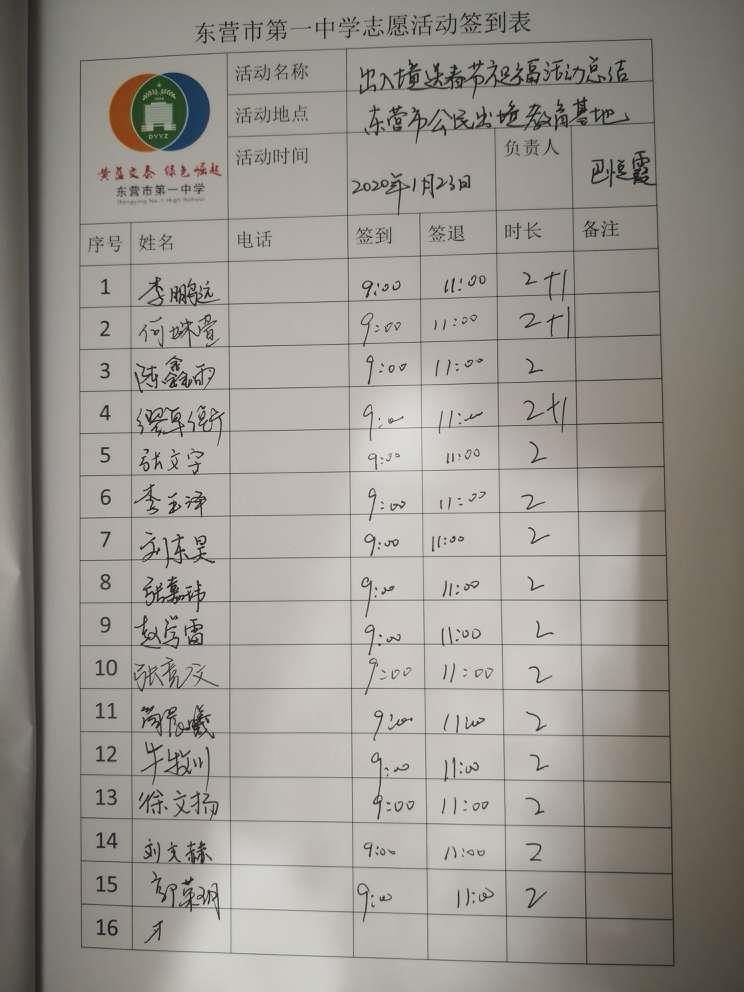 东营市第一中学志愿活动签到表
DYYZ
黄蓝交泰 绿色崛起
东营市第一中学
Dongying No.1 High School
活动名称 出入境送春节祝福活动总结
活动地点 东营市公民出境教育基地
活动时间 2020年1月23日 负责人 巴恒霞
序号 姓名 电话 签到 签退 时长 备注
1 李鹏远 9:00 11:00 2+1
2 何姝萱 9:00 11:00 2+1
3 陈鑫雨 9:00 11:00 2
4 9:00 11:00 2+1
5 张文宇 9:00 11:00 2
6 李玉泽 9:00 11:00 2
7 刘东昊 9:00 11:00 2
8 张嘉玮 9:00 11:00 2
9 赵学雷 9:00 11:00 2
10 张亮文 9:00 11:00 2
11 9:00 11:00 2
12 牛牧川 9:00 11:00 2
13 徐文扬 9:00 11:00 2
14 刘文赫 9:00 11:00 2
15 郭莱玥 9:00 11:00 2
16